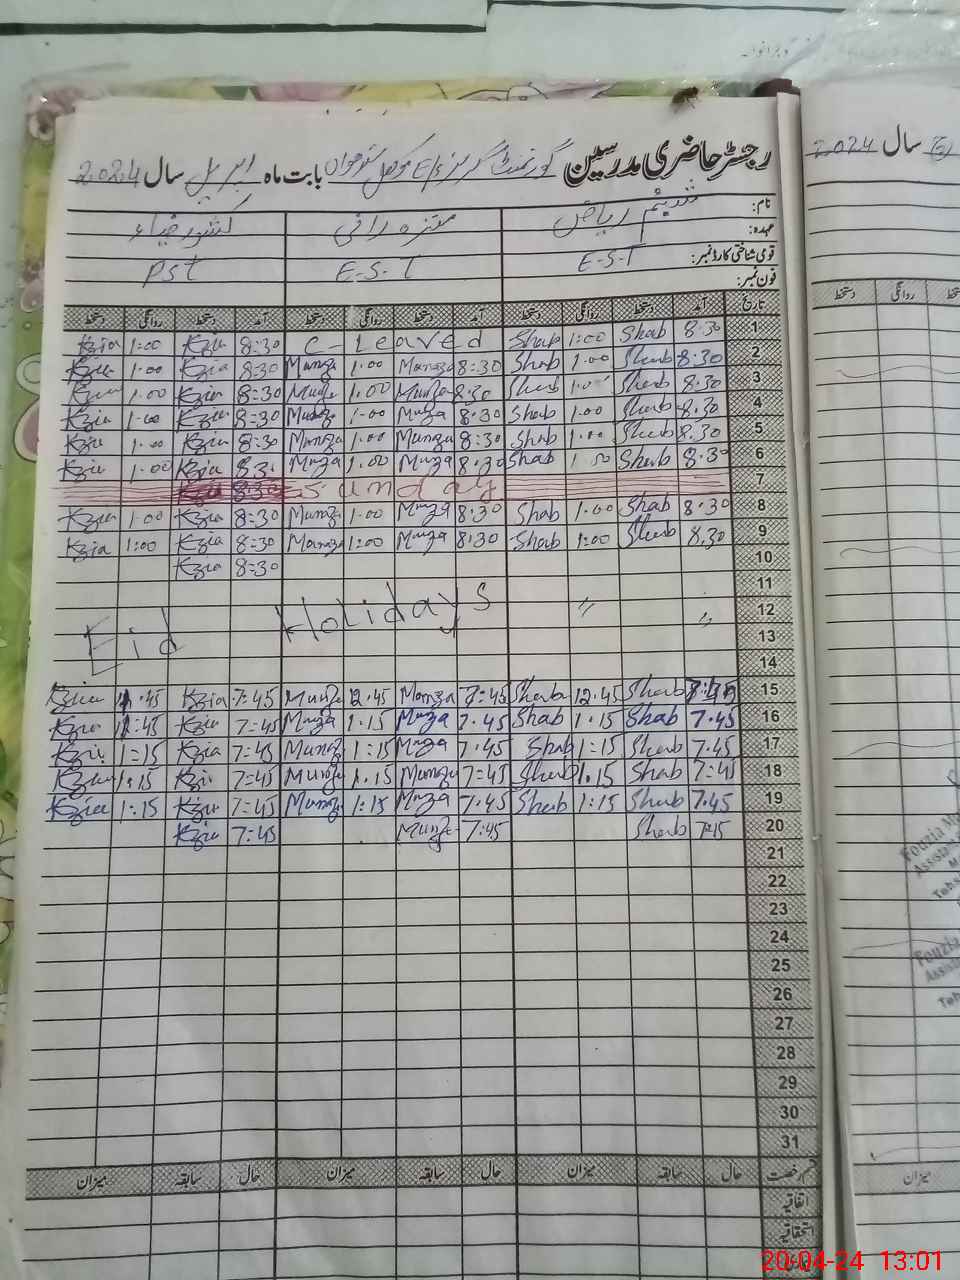 رجسٹر حاضری مدرسین گورنمنٹ گرلز بابت ماہ اپریل سال 2024
نام: شمیم ریاض منزہ رافی کشور ضیاء
عہدہ: E-S-T E-S-T PST
قومی شناختی کارڈ نمبر:
فون نمبر:
تاریخ آمد دستخط روانگی دستخط آمد دستخط روانگی دستخط آمد دستخط روانگی دستخط
1 8.30 Shab 1:00 Shab C-Leaved 8:30 Kzia 1:00 Kzia
2 8:30 Sherb 1.00 Shab 8:30 Manza 1.00 Munza 8:30 Kzia 1.00 Kzia
3 8.30 Sherb Sherb 8.30 Munza 1.00 Munza 8:30 Kzia 1.00 Kzia
4 8.30 Sherb 1.00 Shab 8:30 Muza 1.00 Munza 8:30 Kzia 1.00 Kzia
5 8.30 Sherb 1:00 Shab 8:30 Munza 1.00 Munza 8:30 Kzia 1.00 Kzia
6 8.30 Sherb 1.00 Shab 8.30 Muza 1.00 Muza 8.30 Kzia 1.00 Kzia
7 Sunday 8:30
8 8.30 Shab 1.00 Shab 8.30 Muza 1.00 Munza 8:30 Kzia 1.00 Kzia
9 8.30 Sherb 1:00 Shab 8:30 Muza 1:00 Manza 8:30 Kzia 1:00 Kzia
10 8:30 Kzia
11
12 Eid Holidays " "
13
14
15 Sherb 12.45 Sherb 7:45 Manza 12.45 Munza 7:45 Kzia Kzia
16 7.45 Shab 1.15 Shab 7.45 Muza 1.15 Muza 7:45 Kzia Kzia
17 7.45 Sherb 1:15 Shab 7.45 Muza 1:15 Munaz 7:45 Kzia 1:15 Kzia
18 7:45 Shab 1.15 Sherb 7:45 Munza 1.15 Munza 7:45 Kzia 1.15 Kzia
19 7.45 Sherb 1:15 Sherb 7.45 Muza 1:15 Munza 7:45 Kzia 1:15 Kzia
20 Sherb 7:45 Munza 7:45 Kzia
21
22
23
24
25
26
27
28
29
30
31
قسم رخصت حال سابقہ میزان حال سابقہ میزان حال سابقہ میزان
اتفاقیہ
استحقاقیہ
سال 2024
دستخط روانگی
Fouzia
Assistant
Tehs
Fouzia
Assis
Teh
میزان
20-04-24 13:01